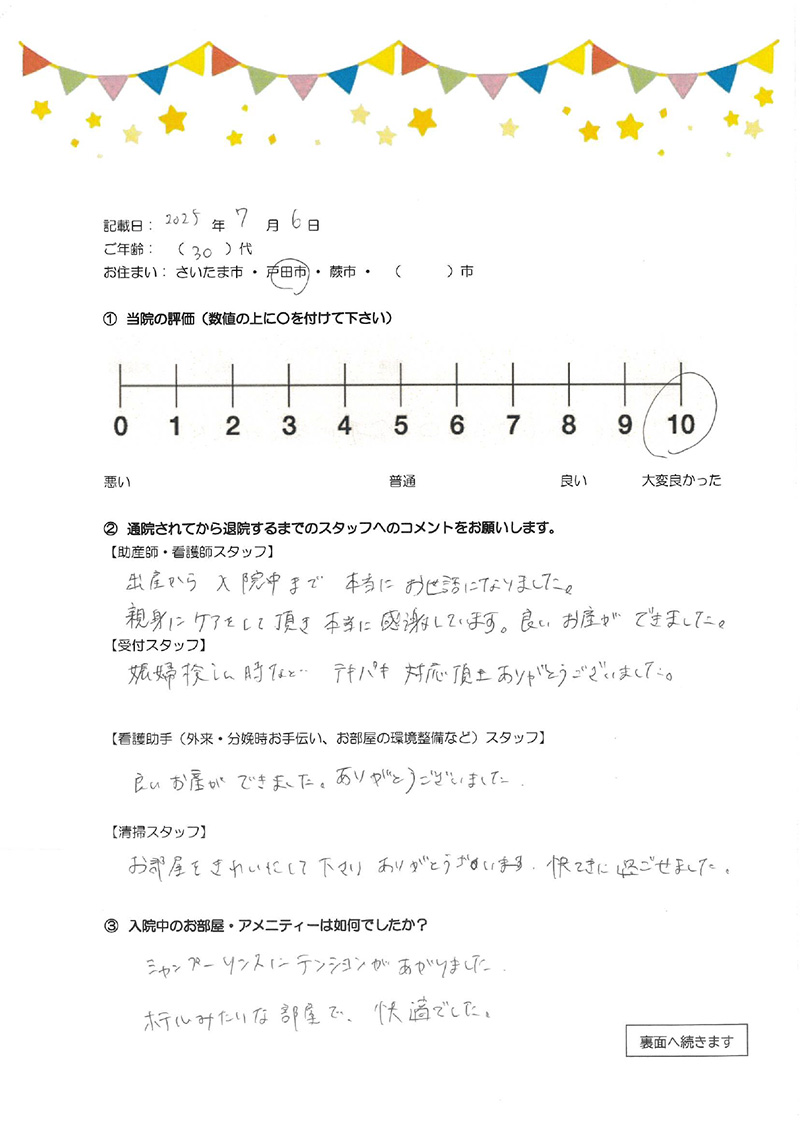 記載日： 2025 年 7 月 6 日
ご年齢： （ 30 ）代
お住まい： さいたま市 ・ 戸田市 ・ 蕨市 ・ （ ）市
① 当院の評価（数値の上に〇を付けて下さい）
0 1 2 3 4 5 6 7 8 9 10
悪い 普通 良い 大変良かった
② 通院されてから退院するまでのスタッフへのコメントをお願いします。
【助産師・看護師スタッフ】
出産から 入院中まで 本当に お世話になりました。
親身に ケアをして頂き 本当に 感謝しています。良い お産が できました。
【受付スタッフ】
妊婦検しん時など… テキパキ 対応頂き ありがとうございました。
【看護助手（外来・分娩時お手伝い、お部屋の環境整備など）スタッフ】
良い お産が できました。ありがとうございました.
【清掃スタッフ】
お部屋を きれいにして 下さり ありがとうございます. 快てきに 過ごせました。
③ 入院中のお部屋・アメニティーは如何でしたか？
シャンプーリンスに テンションが あがりました.
ホテルみたいな 部屋で、 快適でした。
裏面へ続きます